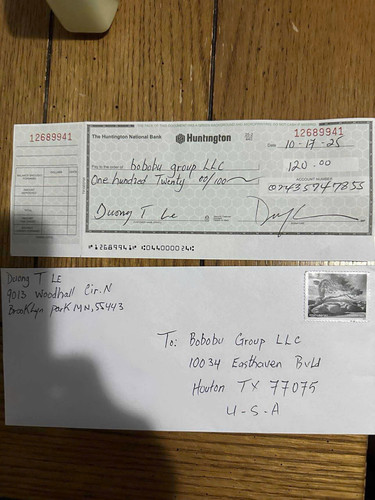 12689941
The Huntington National Bank
Huntington
12689941
Date 10-17-25
Pay to the order of bobobu group LLC
120.00
One hundred Twenty 00/100
ACCOUNT NUMBER
02435747855
Duong T. Le
⑈12689941⑈ ⑆044000024⑆
Duong T. Le
9013 Woodhall Cir. N
Brooklyn park MN, 55443
To: Bobobu Group LLC
10034 Easthaven Bvld
Houton TX 77075
U-S-A